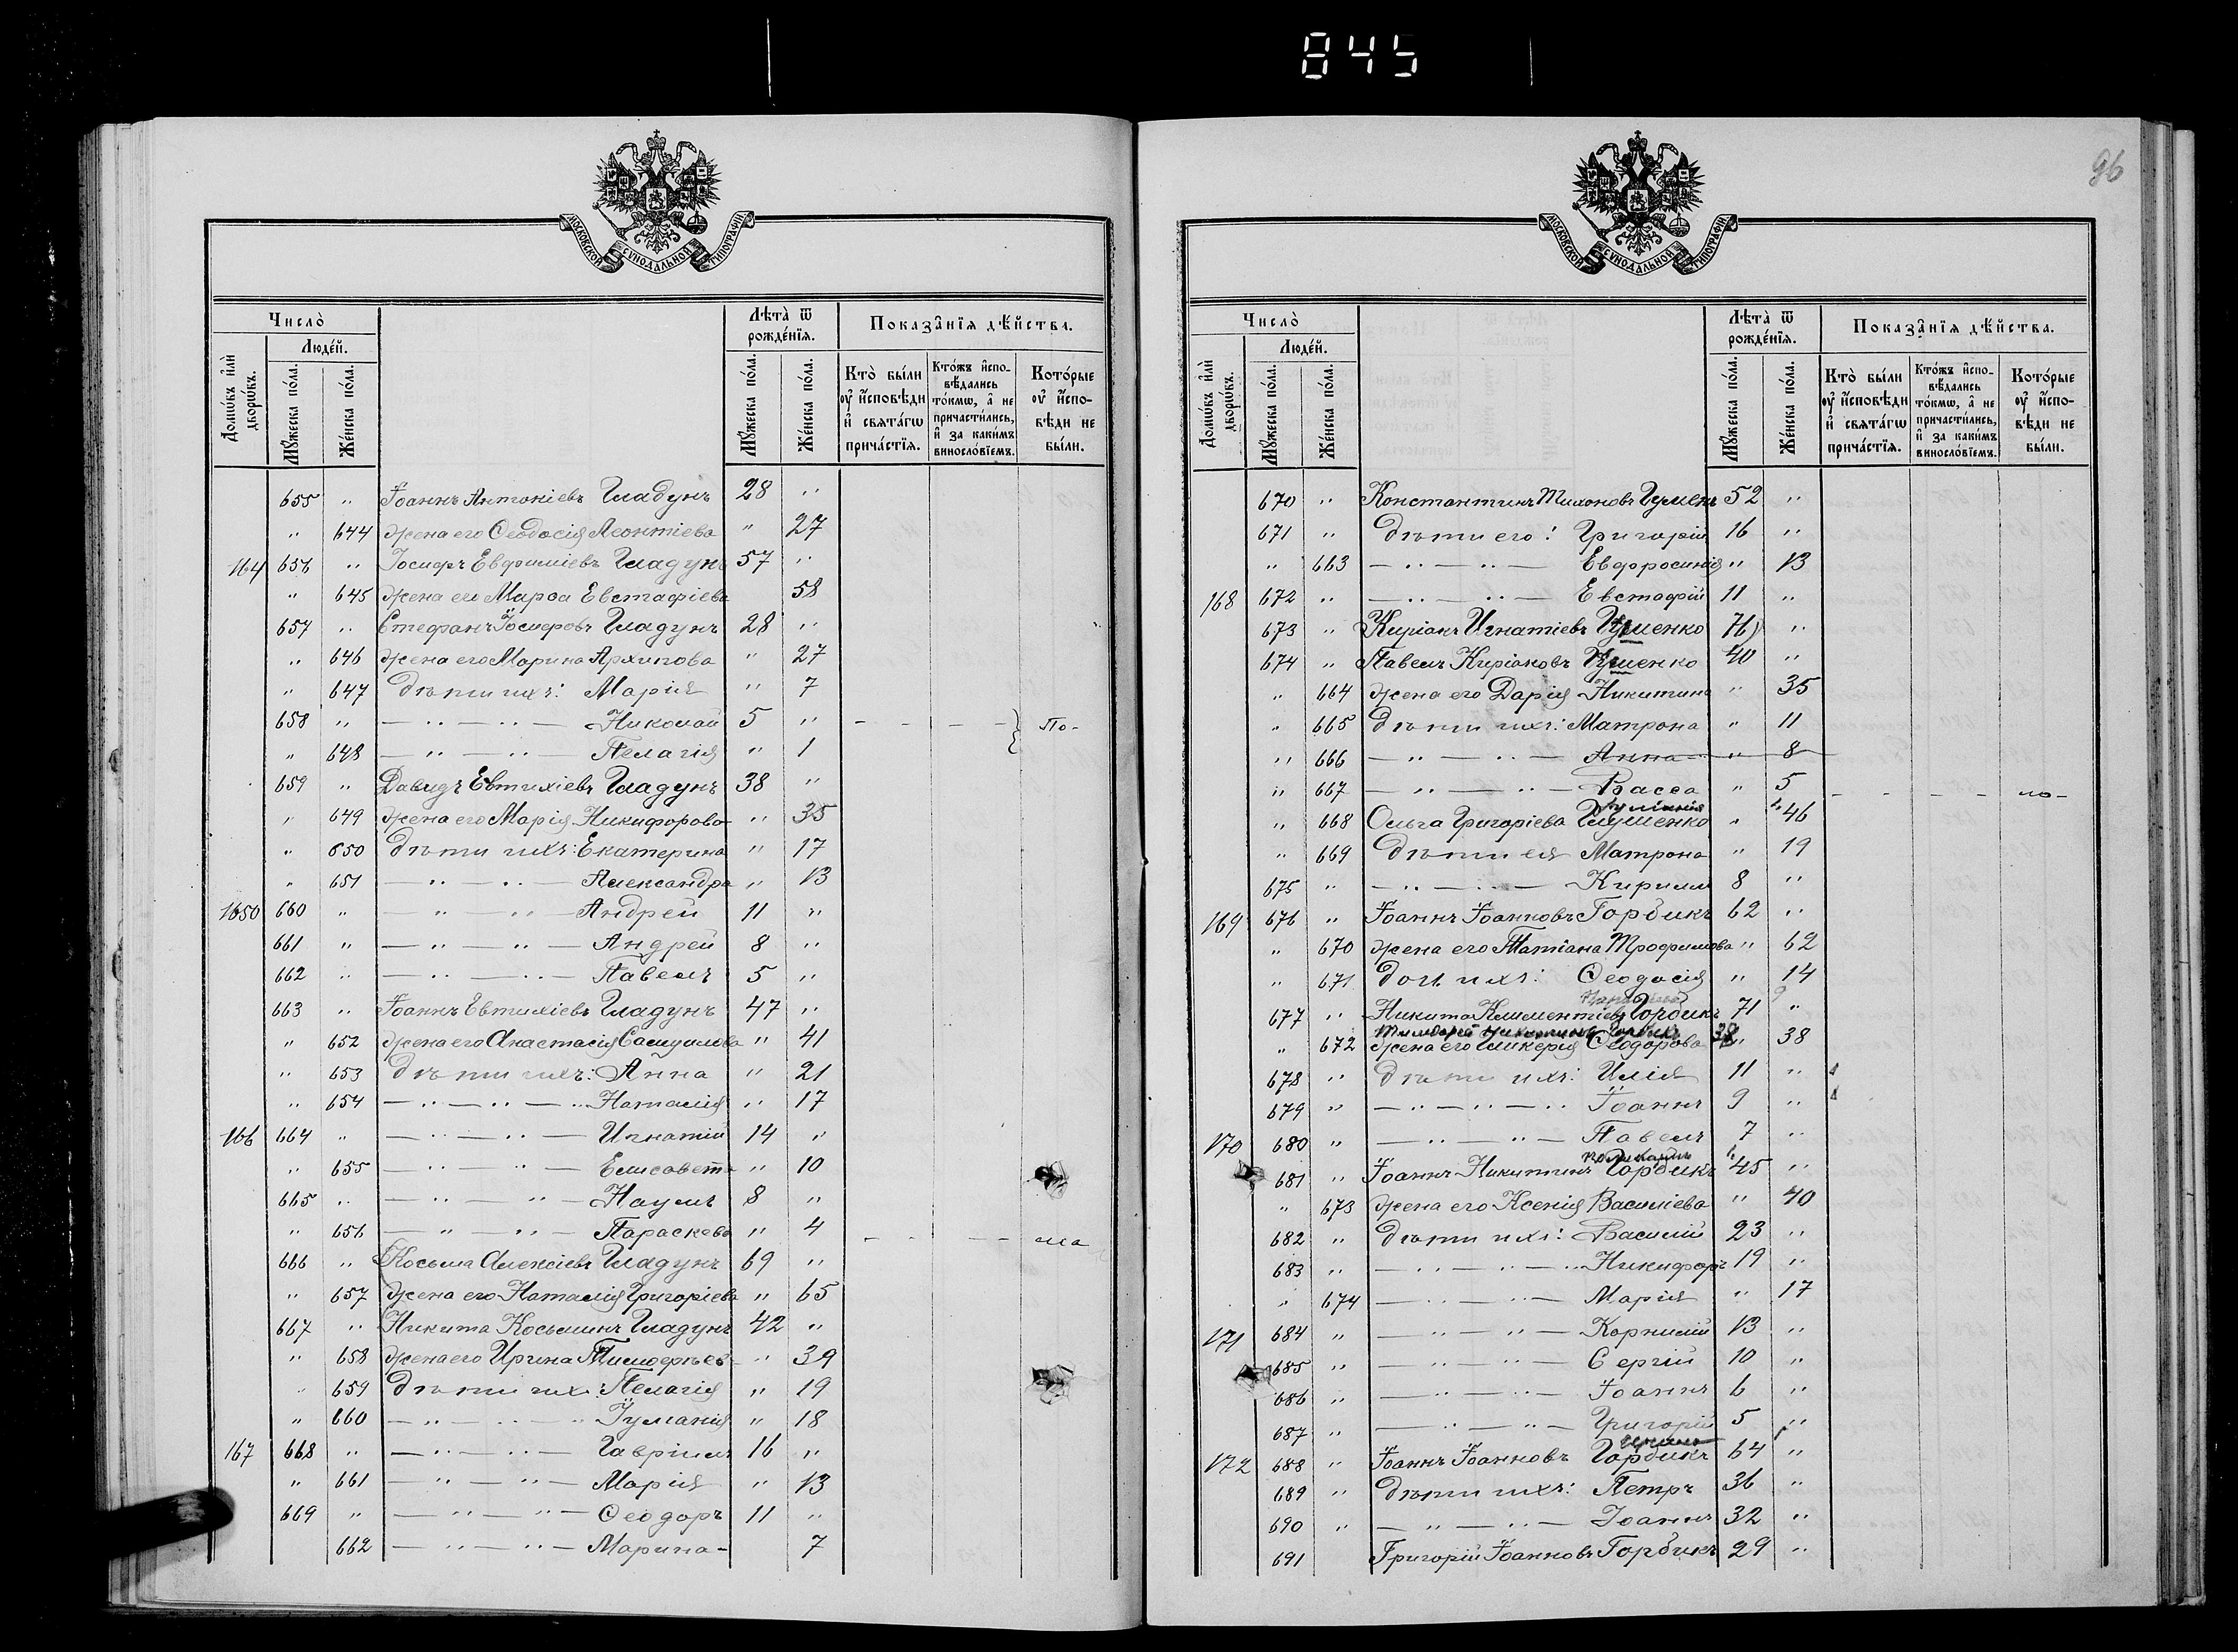 845
96
МОСКОВСКОЙ СѴНОДАЛЬНОЙ ТИПОГРАФІИ
Число̀
Людей.
Домѡвъ и҆лѝ дворѡвъ.
Мꙋжеска по́ла.
Же́нска по́ла.
Лѣта̀ ѿ рожде́нїѧ.
Мꙋжеска по́ла.
Же́нска по́ла.
Показа̑нїѧ дѣ́йства.
Кто̀ бы́ли оу҆ и҆сповѣди и҆ свѧта́гѡ прича́стїѧ.
Кто́жъ и҆спо- вѣ́дались то́кмѡ, а҆ не причасти́лись, и҆ за каки́мъ винословїемъ.
Кото́рые оу҆ и҆спо- вѣди не бы́ли.
655 " Іоаннъ Антоніевъ Гладунъ 28 "
" 644 жена его Ѳеодосія Леонтіева " 27
164 656 " Іосифъ Евфиміевъ Гладунъ 57 "
" 645 жена его Марѳа Евстафіева 58
657 " Стефанъ Іосифовъ Гладунъ 28 "
" 646 жена его Марина Архипова " 27
" 647 дѣти ихъ: Марія " 7
658 " — " — " — Николай 5 " - - - - По-
" 648 — " — " — Пелагія " 1
659 " Давидъ Евтихіевъ Гладунъ 38 "
" 649 жена его Марія Никифорова " 35
" 650 дѣти ихъ: Екатерина " 17
" 651 — " — " — Александра " 13
1650 660 " — " — " — Андрей 11 "
661 " — " — " — Андрей 8 "
662 " — " — " — Павелъ 5 "
663 " Іоаннъ Евтихіевъ Гладунъ 47 "
" 652 жена его Анастасія Самуилова " 41
" 653 дѣти ихъ: Анна " 21
" 654 — " — " — " Наталія " 17
166 664 " — " — " — Игнатій 14 "
" 655 — " — " — Елисавета " 10
665 " — " — " — Наумъ 8 "
" 656 — " — " — Параскева " 4 - - - -
666 " Косьма Алексіевъ Гладунъ 69 "
" 657 жена его Наталія Григоріева " 65
667 " Никита Косьминъ Гладунъ 42 "
" 658 жена его Ирина Тимоѳеев- " 39
" 659 дѣти ихъ: Пелагія " 19
" 660 — " — " — " Іуліанія " 18
167 668 " — " — " — Гавріилъ 16 "
" 661 — " — " — Марія " 13
669 " — " — " — Ѳеодоръ 11 "
662 — " — " — Марина - 7
Число̀
Людей.
Домѡвъ и҆лѝ дворѡвъ.
Мꙋжеска по́ла.
Же́нска по́ла.
Лѣта̀ ѿ рожде́нїѧ.
Мꙋжеска по́ла.
Же́нска по́ла.
Показа̑нїѧ дѣ́йства.
Кто̀ бы́ли оу҆ и҆сповѣди и҆ свѧта́гѡ прича́стїѧ.
Кто́жъ и҆спо- вѣ́дались то́кмѡ, а҆ не причасти́лись, и҆ за каки́мъ винословїемъ.
Кото́рые оу҆ и҆спо- вѣди не бы́ли.
МОСКОВСКОЙ СѴНОДАЛЬНОЙ ТИПОГРАФІИ
670 " Константинъ Тихоновъ 52 "
671 " дѣти его: Григорій 16 "
" 663 — " — " — Евфросинія " 13
168 672 " — " — " — Евстафій 11 "
673 " Киріакъ Игнатіевъ "
674 " Павелъ Киріаковъ 40 "
" 664 жена его Дарія Никитина " 35
" 665 дѣти ихъ: Матрона " 11
" 666 — " — " — Анна " 8
" 667 — " — " — Васса " 5 - - - - по-
" 668 Ольга Григоріева " 46
" 669 дѣти ея Матрона " 19
675 " — " — " — Кириллъ 8 "
169 676 " Іоаннъ Іоанновъ Горбикъ 62 "
" 670 жена его Татіана Трофимова " 62
" 671 дочь ихъ: Ѳеодосія " 14
677 " Никита Климентіевъ Горбикъ 71 "
Тимоѳей Никитинъ Горбикъ 38
" 672 жена его Гликерія Ѳеодорова " 38
678 " дѣти ихъ: Илія 11 "
679 " — " — " — " Іоаннъ 9 "
170 680 " — " — " — Павелъ 7 "
681 " Іоаннъ Никитинъ Горбикъ 45 "
" 673 жена его Ксенія Василіева " 40
682 " дѣти ихъ: Василій 23 "
683 " — " — " — " Никифоръ 19 "
" 674 — " — " — Марія " 17
171 684 " — " — " — Корнилій 13 "
685 " — " — " — Сергій 10 "
686 " — " — " — Іоаннъ 6 "
687 " — " — " — Григорій 5 "
172 688 " Іоаннъ Іоанновъ Горбикъ 64 "
689 " дѣти ихъ: Петръ 36 "
690 " — " — " — Іоаннъ 32 "
691 Григорій Іоанновъ Горбикъ 29 "